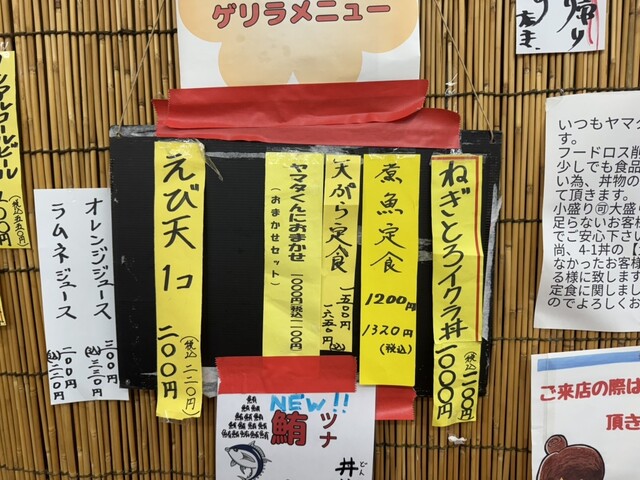 ゲリラメニュー
ねぎとろイクラ丼 1000円
(税込)1100円
煮魚定食
1200円
1320円
(税込)
天ぷら定食 一五〇〇円
一六五〇円(込)
ヤマタくんにおまかせ 一〇〇〇円税込一一〇〇円
(おまかせセット)
えび天 1コ 二〇〇円
(税込)二二〇円
オレンジジュース 三〇〇円
(込)三三〇円
ラムネジュース 二〇〇円
(込)二二〇円
ノンアルコールビール
(税込五五〇円)
NEW!!
鮪
ツナ
丼
どん
いつもヤマタ
す。
フードロス削
少しでも食品
い為、丼物の
て頂きます。
小盛り可大盛り
足らないお客様
でご安心下さい
尚、41丼の【
なかったお客様
る様に致します
定食に関しまし
のでよろしくお
ご来店の際は
頂き
帰り